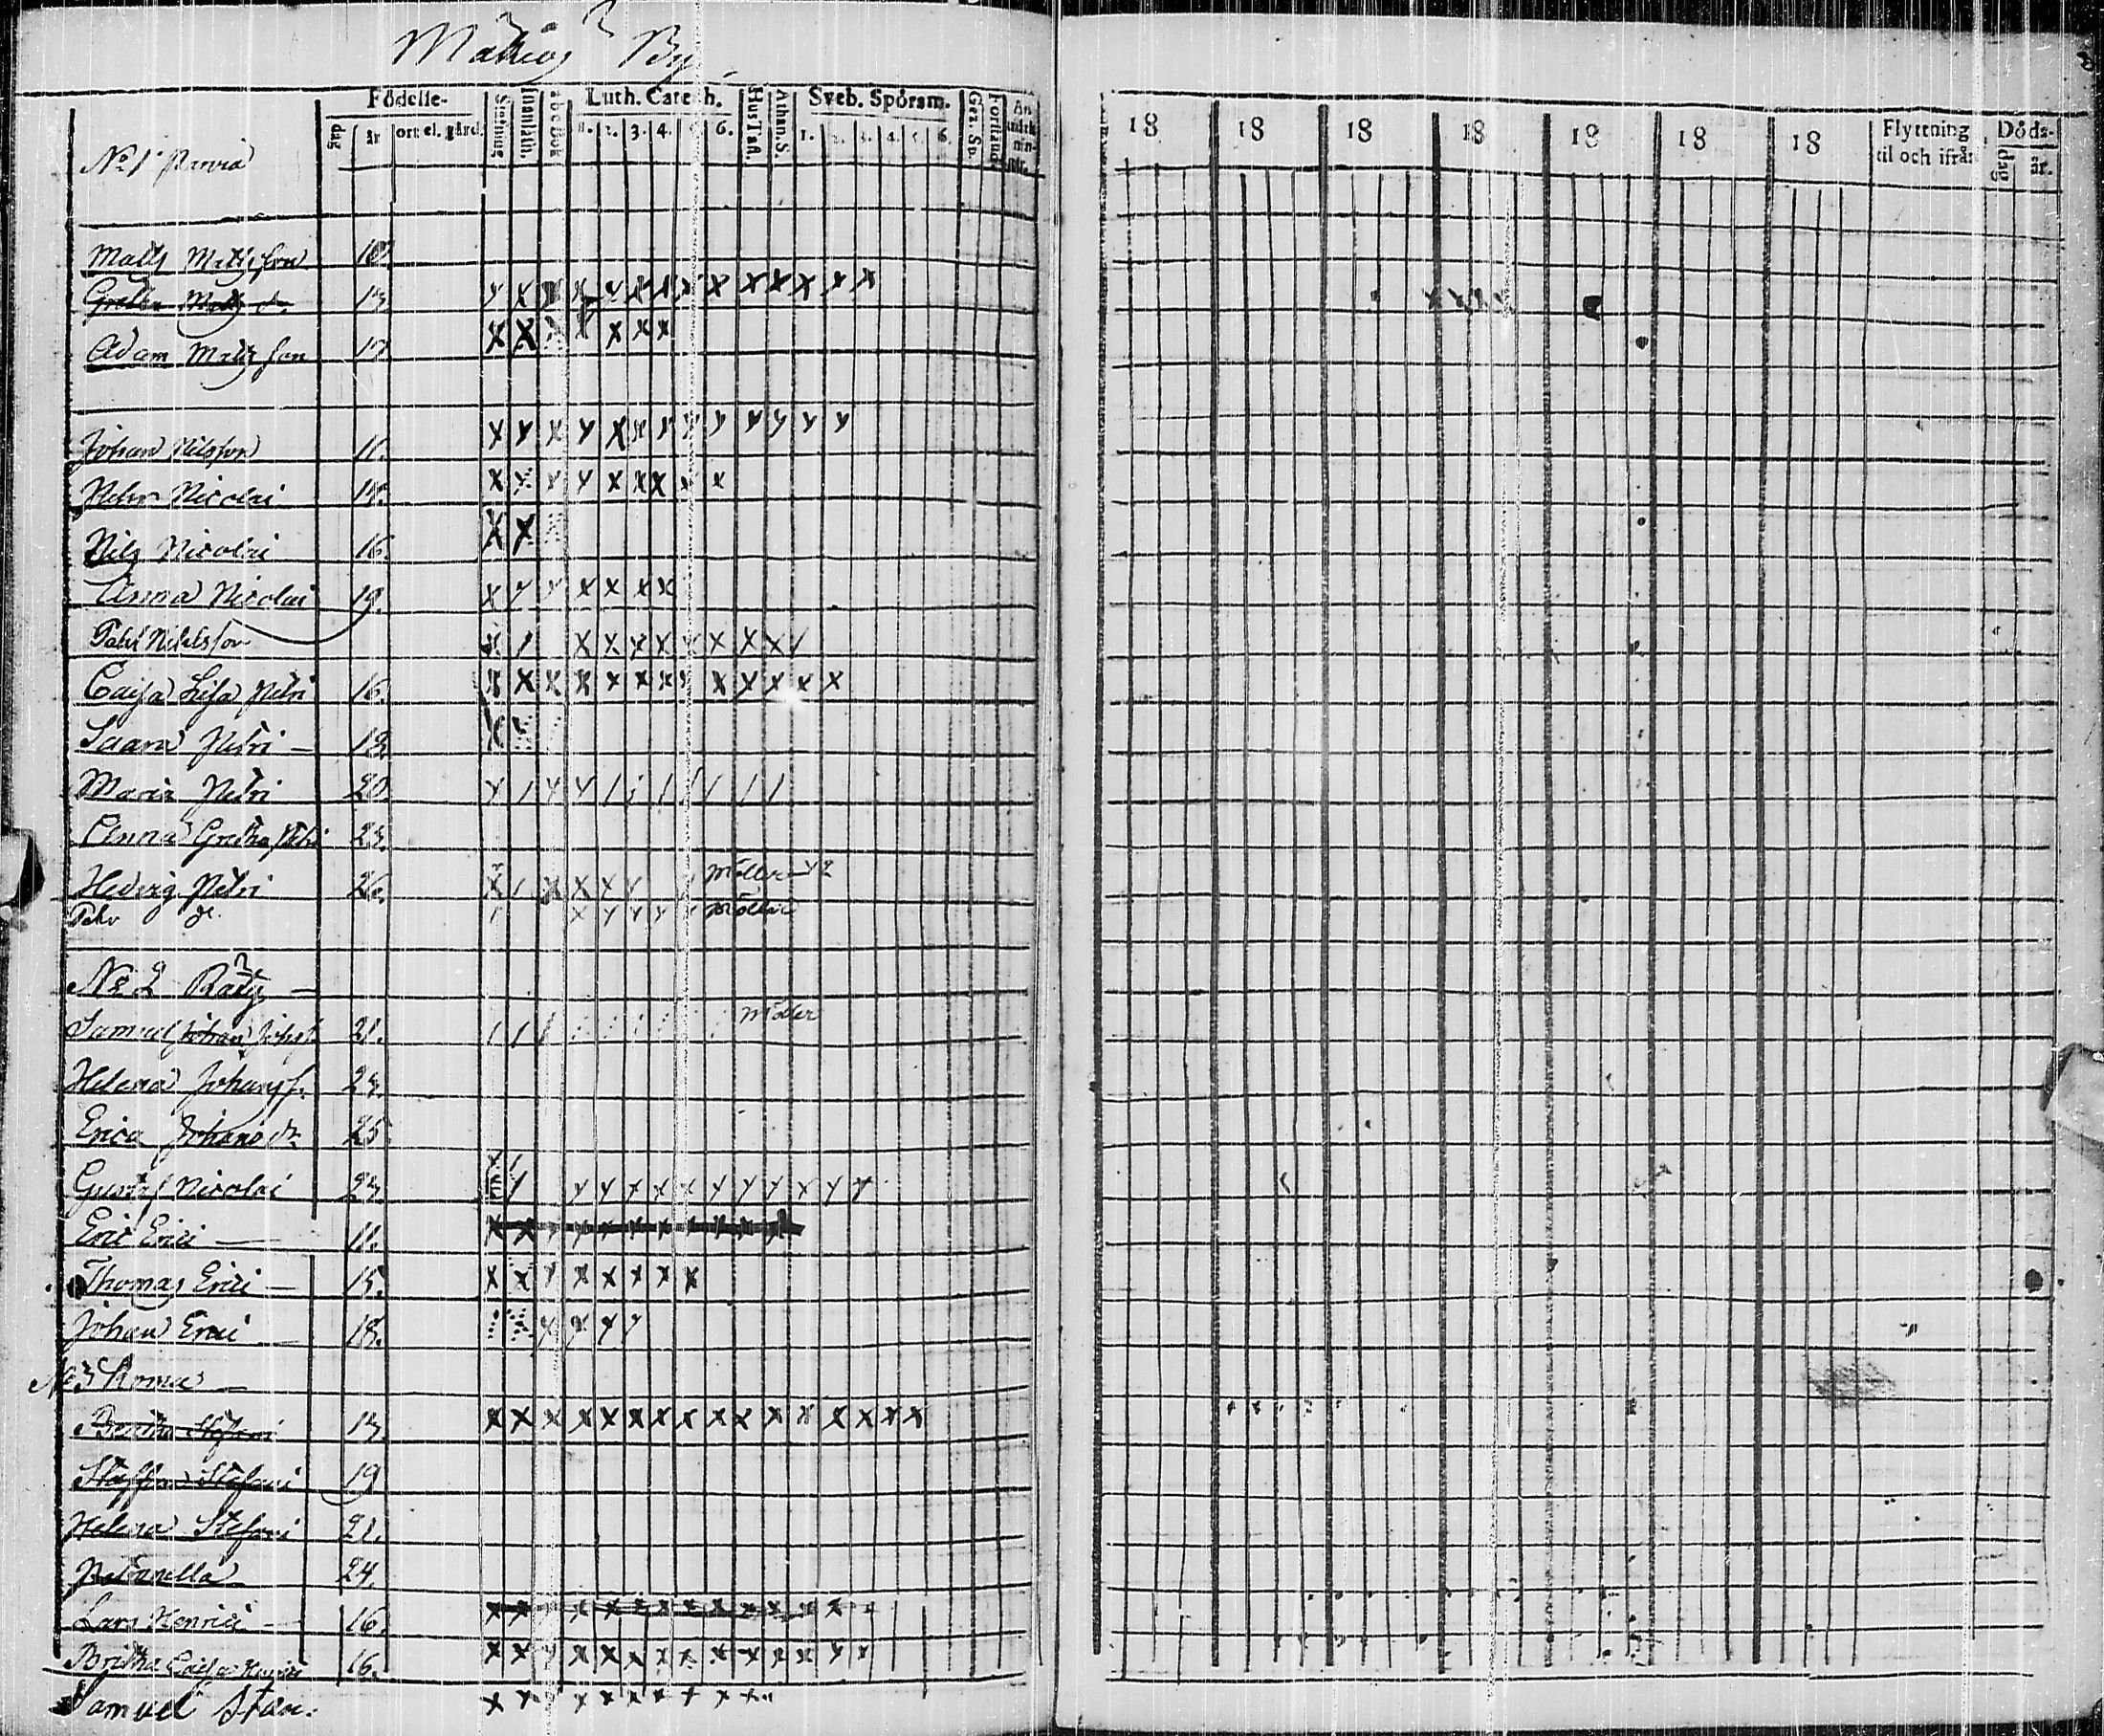 By
Födelse-
dag
år
ort el. gård
Stafning
Innanläsn.
Abc Bok
Luth. Catech.
1. 2. 3. 4. 5. 6.
Hus Tafl.
Athan. S.
Sveb. Spörsm.
1. 2. 3. 4. 5. 6.
Gez. Sp.
Förstånd
18 18 18 18 18 18 18
Flyttning til och ifrån
Döds-
dag
år.
No 1
Matts Mattsson 10.
Gretha Matts dr 13.
Adam Matts son 17.
Johan Nilsson 11.
Petter Nicolai 14.
Nils Nicolai 16.
Anna Nicolai 19.
Pehr Nicklsson
Caisa Lisa Petri 16.
Saara Petri — 18.
Maria Petri 20.
Anna Gretha Petri 23.
Hedvig Petri 26. Möller
Pehr dr. Möller
No 2 Räty —
Samuel Johan Johans 21. Möller
Helena Johans 23.
Erica Johans dr 25
Gustaf Nicolai 23.
Eric Erici — 11.
Thomas Erici — 15.
Johan Erici — 18.
No 3
Britha Stefani 13.
Staffan Stefani 19
Helena Stefani 21.
Petronella 24.
Lars Henrici — 16.
Britha Caisa Henrici 16.
Samuel